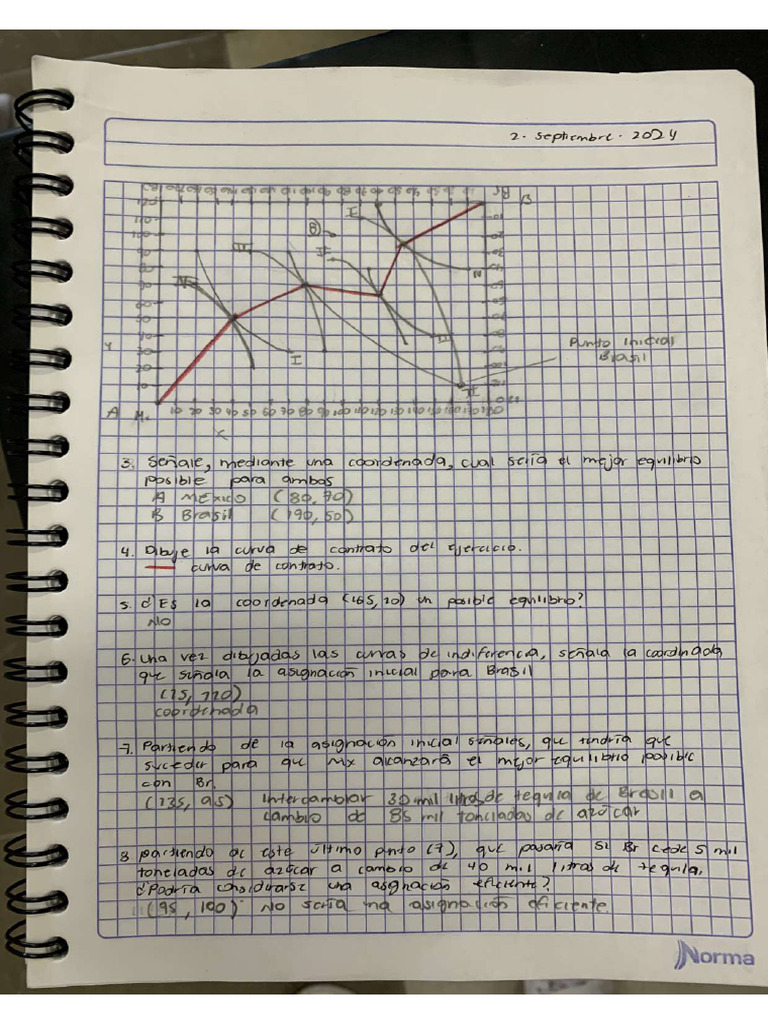 2. Septiembre. 2024
Br
B
120
110
100
I
B
III
II
N
Y
I
II
Punto inicial
Brasil
A Mx 10 20 30 40 50 60 70 80 90
X
3. Señale, mediante una coordenada, cual sería el mejor equilibrio
posible para ambos
A México (80,70)
B Brasil (190,50)
4. Dibuje la curva de contrato del ejercicio.
curva de contrato.
5. d'Es la coordenada (165,20) un posible equilibrio?
No
6. Una vez dibujadas las curvas de indiferencia, señala la coordenada
que señala la asignación inicial para Brasil
(15, 110)
coordenada
7. Partiendo de la asignación inicial señales, que tendría que
suceder para que Mx alcanzara el mejor equilibrio posible
con Br.
(135, 95) Intercambiar 30 mil litros de tequila de Brasil a
cambio de 85 mil toneladas de azúcar
8 partiendo de este último punto (7), que pasaría si Br cede 5 mil
toneladas de azúcar a cambio de 40 mil litros de tequila,
d'Podría considerarse una asignación eficiente?
(95, 100) No sería na asignación eficiente.
Norma